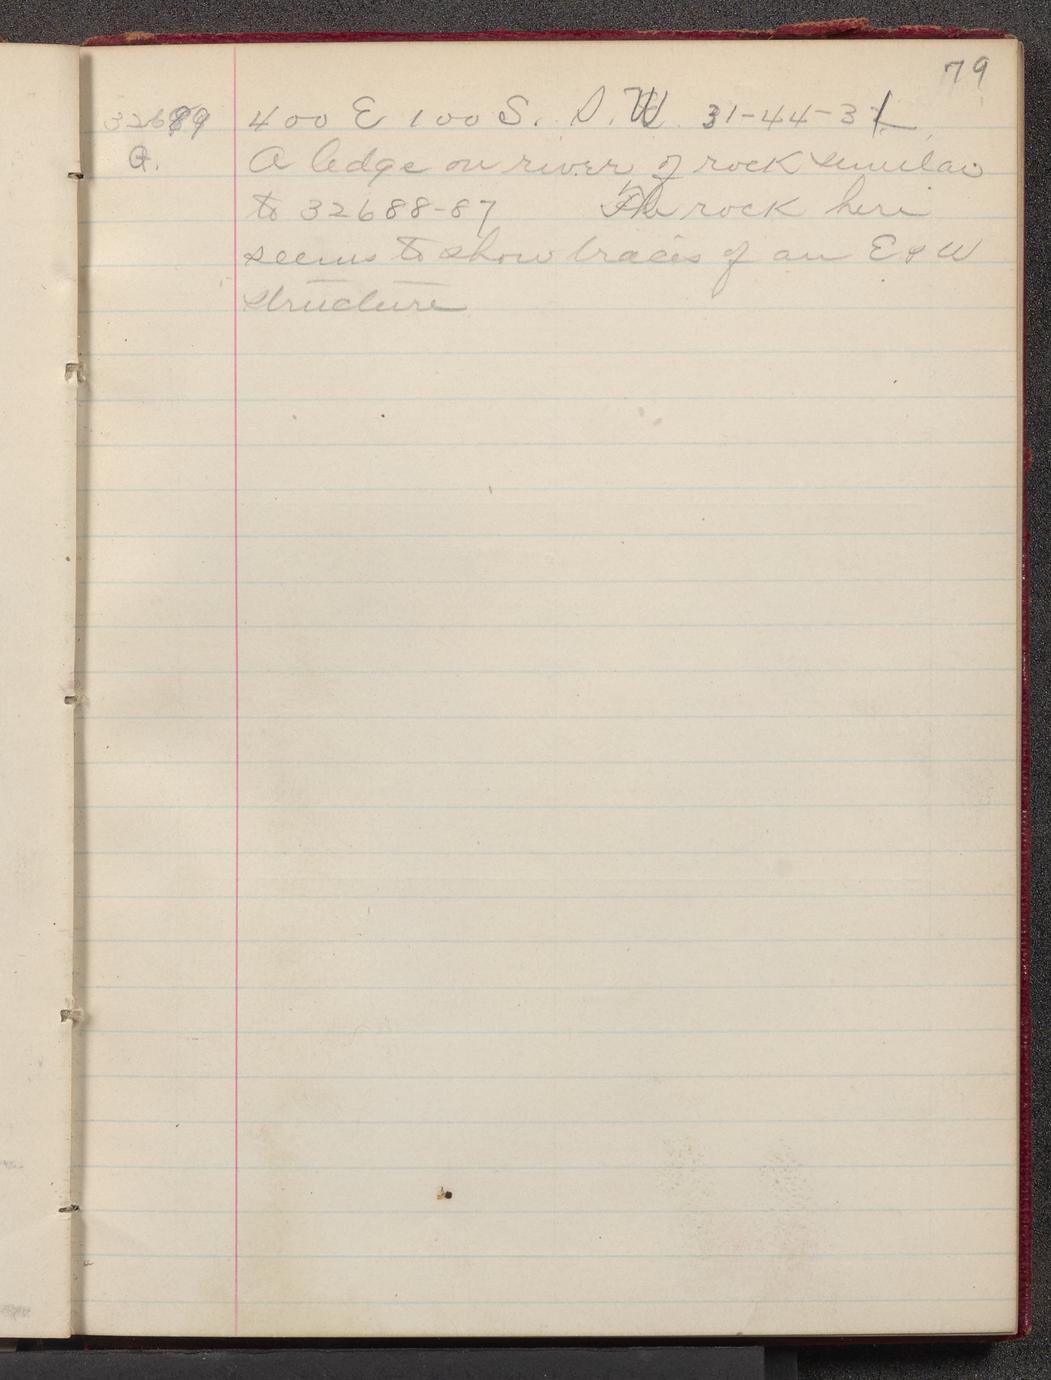 79
32689 400 E 100 S. S.W. 31-44-31
G. A ledge on river of rock similar
to 32688-87 The rock here
seems to show traces of an E & W
structure